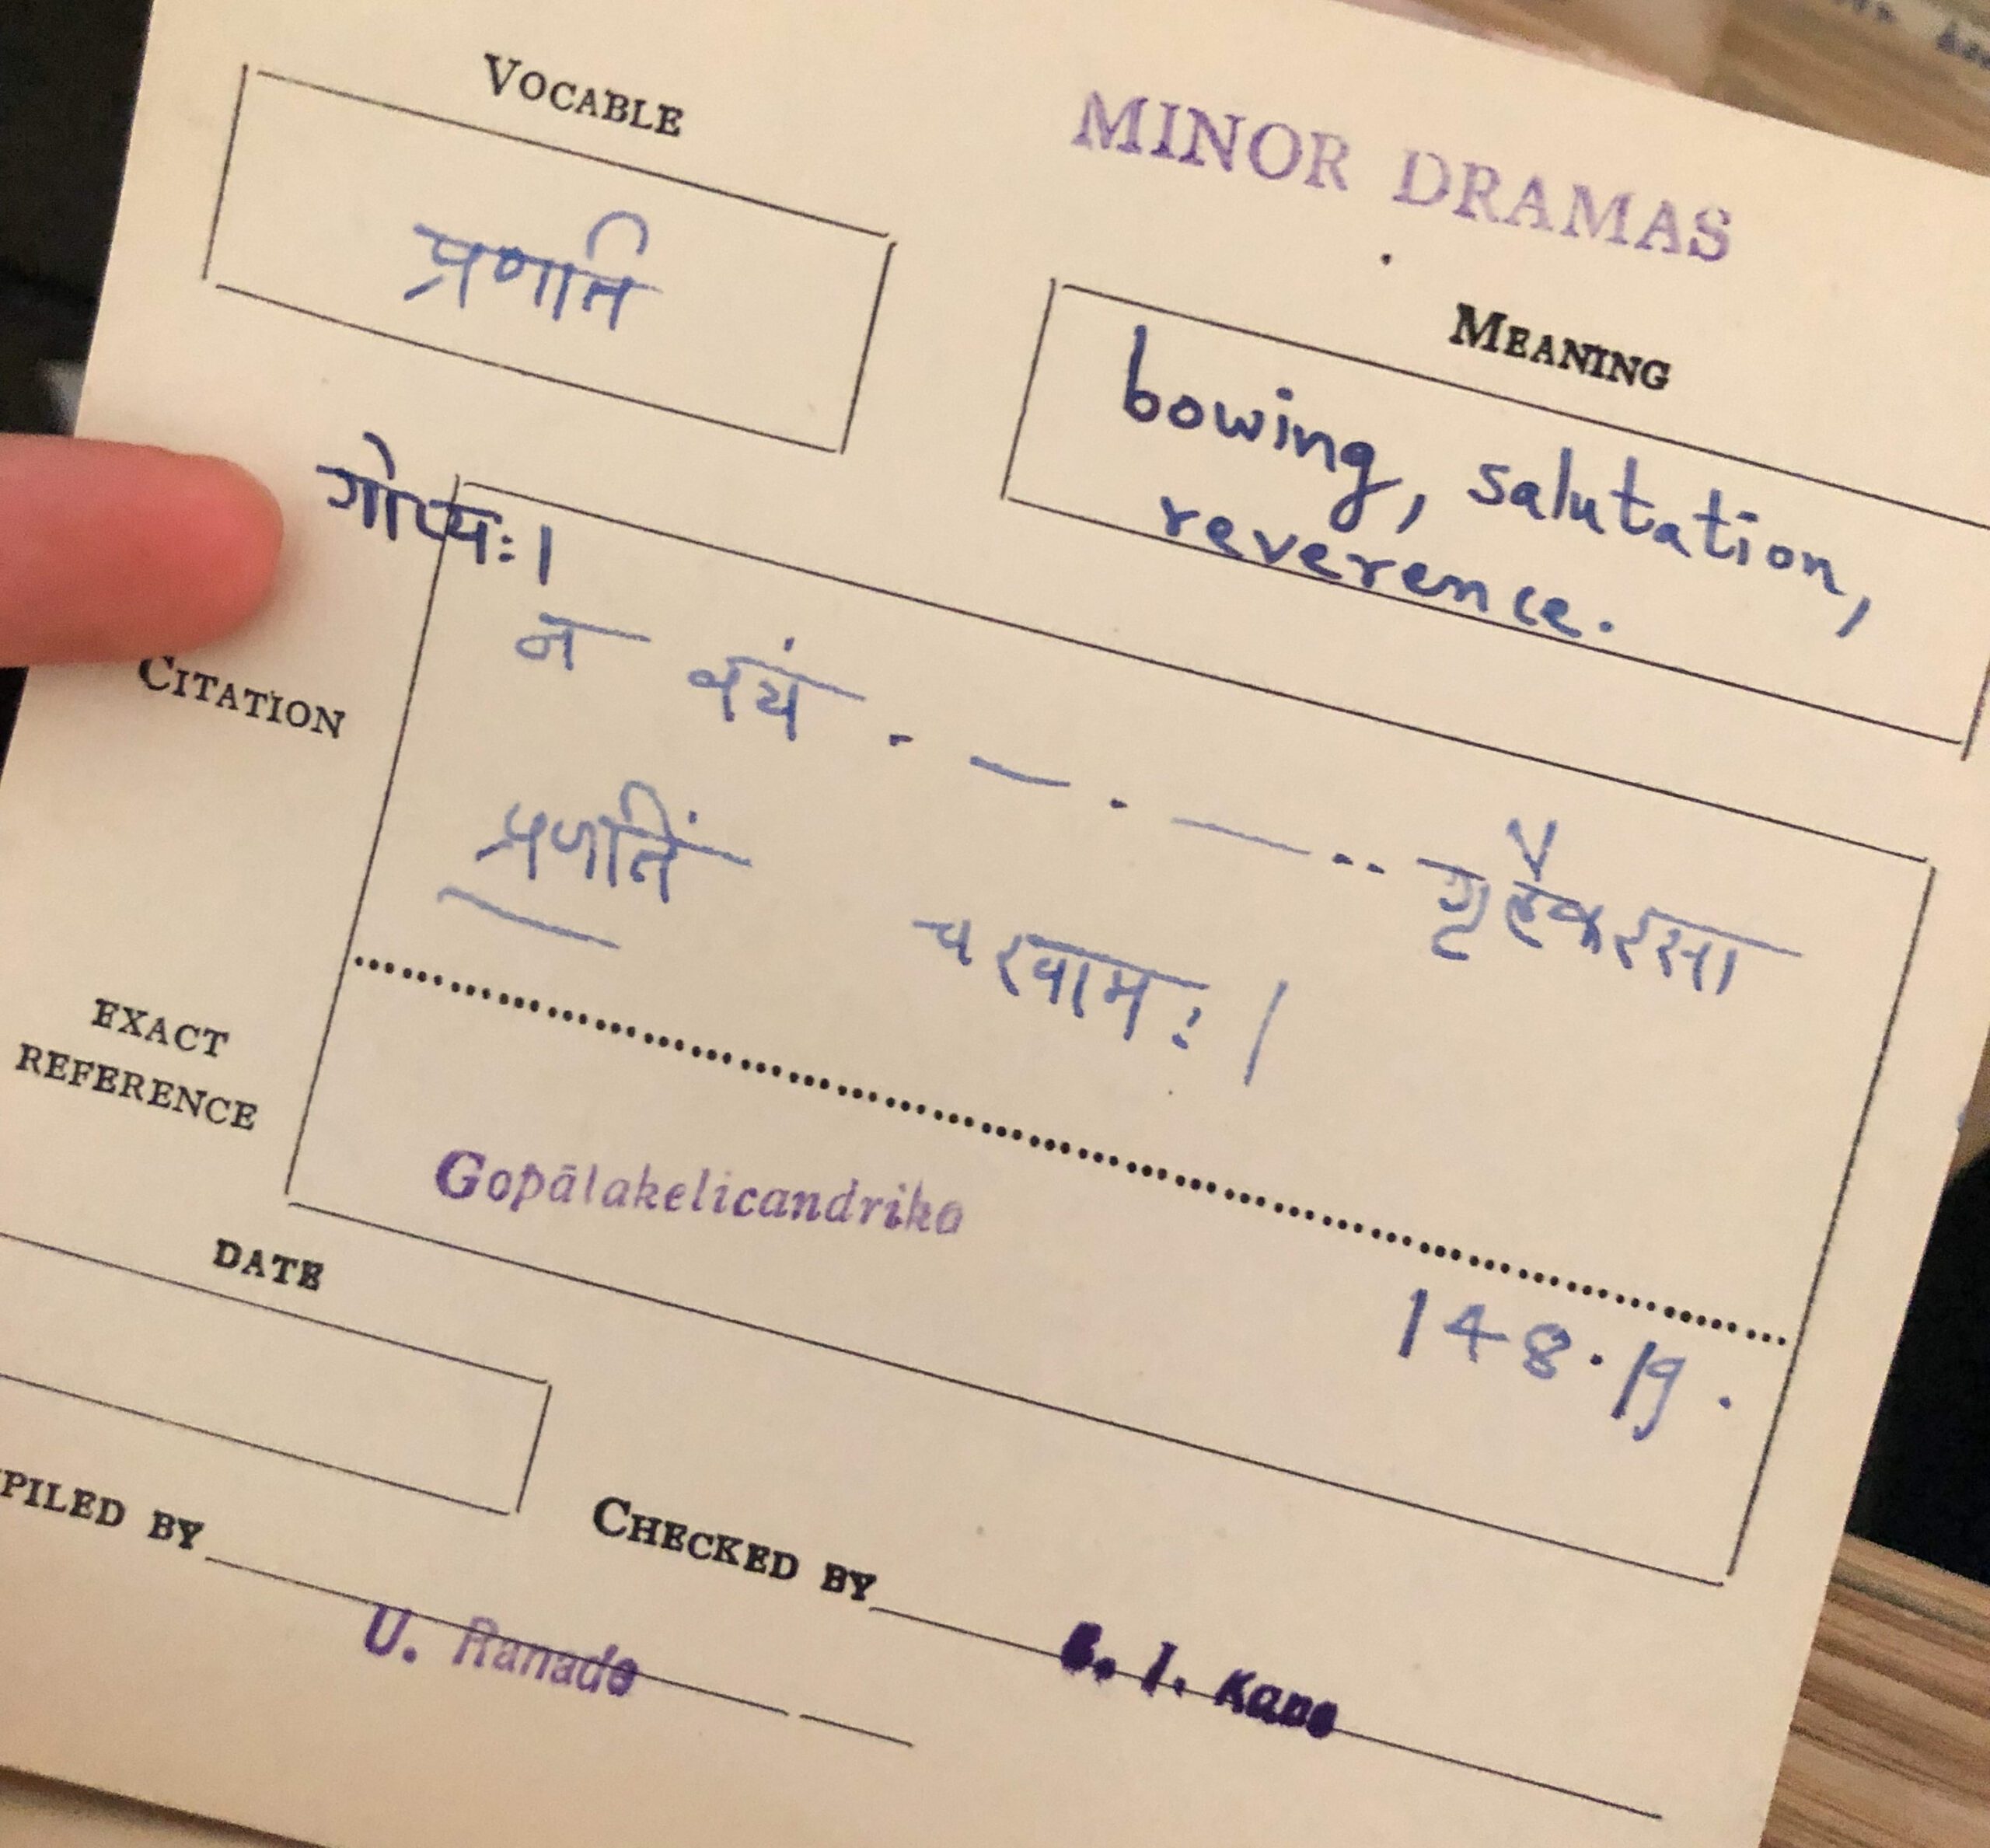 MINOR DRAMAS
VOCABLE
प्रणति
MEANING
bowing, salutation,
reverence.
गोप्यः।
CITATION
न वयं . — . — .. गृहैकरसा
प्रणतिं चरवामः।
EXACT
REFERENCE
Gopālakelicandrika
148.19.
DATE
PILED BY U. Ranade
CHECKED BY I. Kane